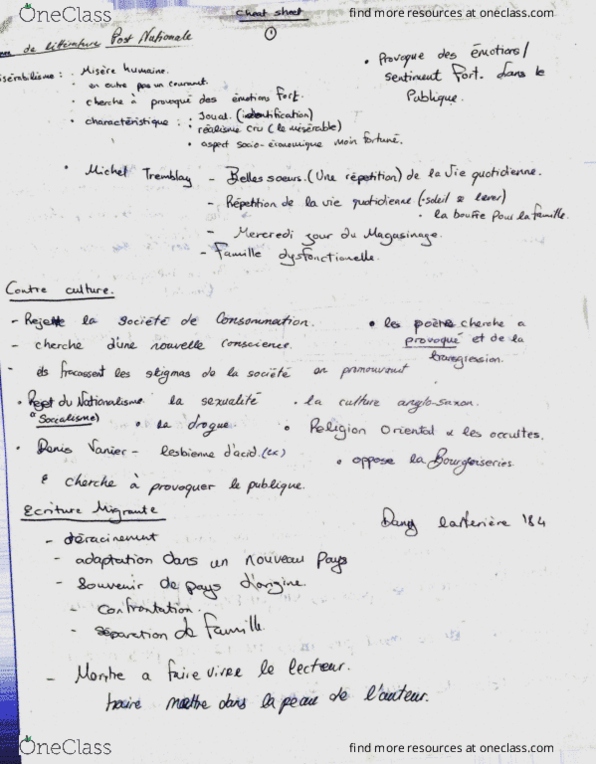 OneClass
find more resources at oneclass.com
cheat sheet
1
de littérature Post Nationale
sérabilisme : • Misère humaine.
• en outre pas un courant.
• cherche à provoqué des émotions fort.
• charactéristique : : Joual. (identification)
• réalisme cru (le misérable)
• aspect socio-économique moin fortuné.
• Provoque des émotions/
sentiment fort. dans le
Publique.
• Michel Tremblay - Belles soeurs. (Une répetition) de la vie quotidienne.
- Répétition de la vie quotidienne (•soleil se lever)
• la bouffe pour la famille.
- Mercredi jour du Magasinage.
- Famille dysfonctionelle.
Contre culture.
- Rejette la société de Consommation.
- cherche d'une nouvelle conscience.
- ils fracassent les stigmas de la société en promouvant
• les poètes cherche a
provoqué et de la
transgression.
• Rejet du Nationalisme la sexualité • la culture anglo-saxon.
(Socialisme) • la drogue. • Religion Oriental & les occultes.
• Denis Vanier - lesbienne d'acid. (ex) • oppose la Bourgeiseries
& cherche à provoquer le publique.
Ecriture Migrante
Dany laferière 184
- déracinement
- adaptation dans un nouveau Pays
- Souvenir de pays d'origine.
- confrontation.
- séparation de Famille
- Montre a faire vivre le lecteur.
faire mettre dans la peau de l'auteur.
OneClass
find more resources at oneclass.com